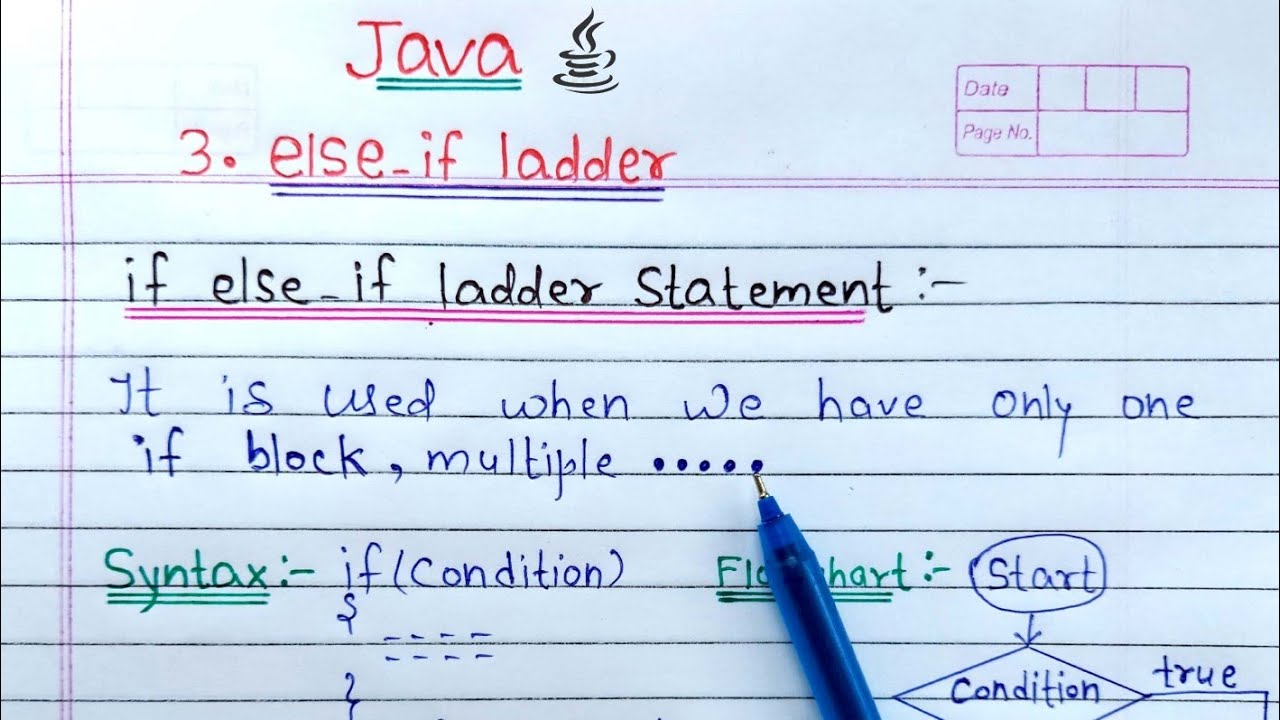 Java
Date
Page No.
3. else-if ladder
if else-if ladder Statement :-
It is used when we have only one
if block, multiple .....
Syntax :- if (Condition)
{
- - - -
- - - -
}
:- Start
Condition
true